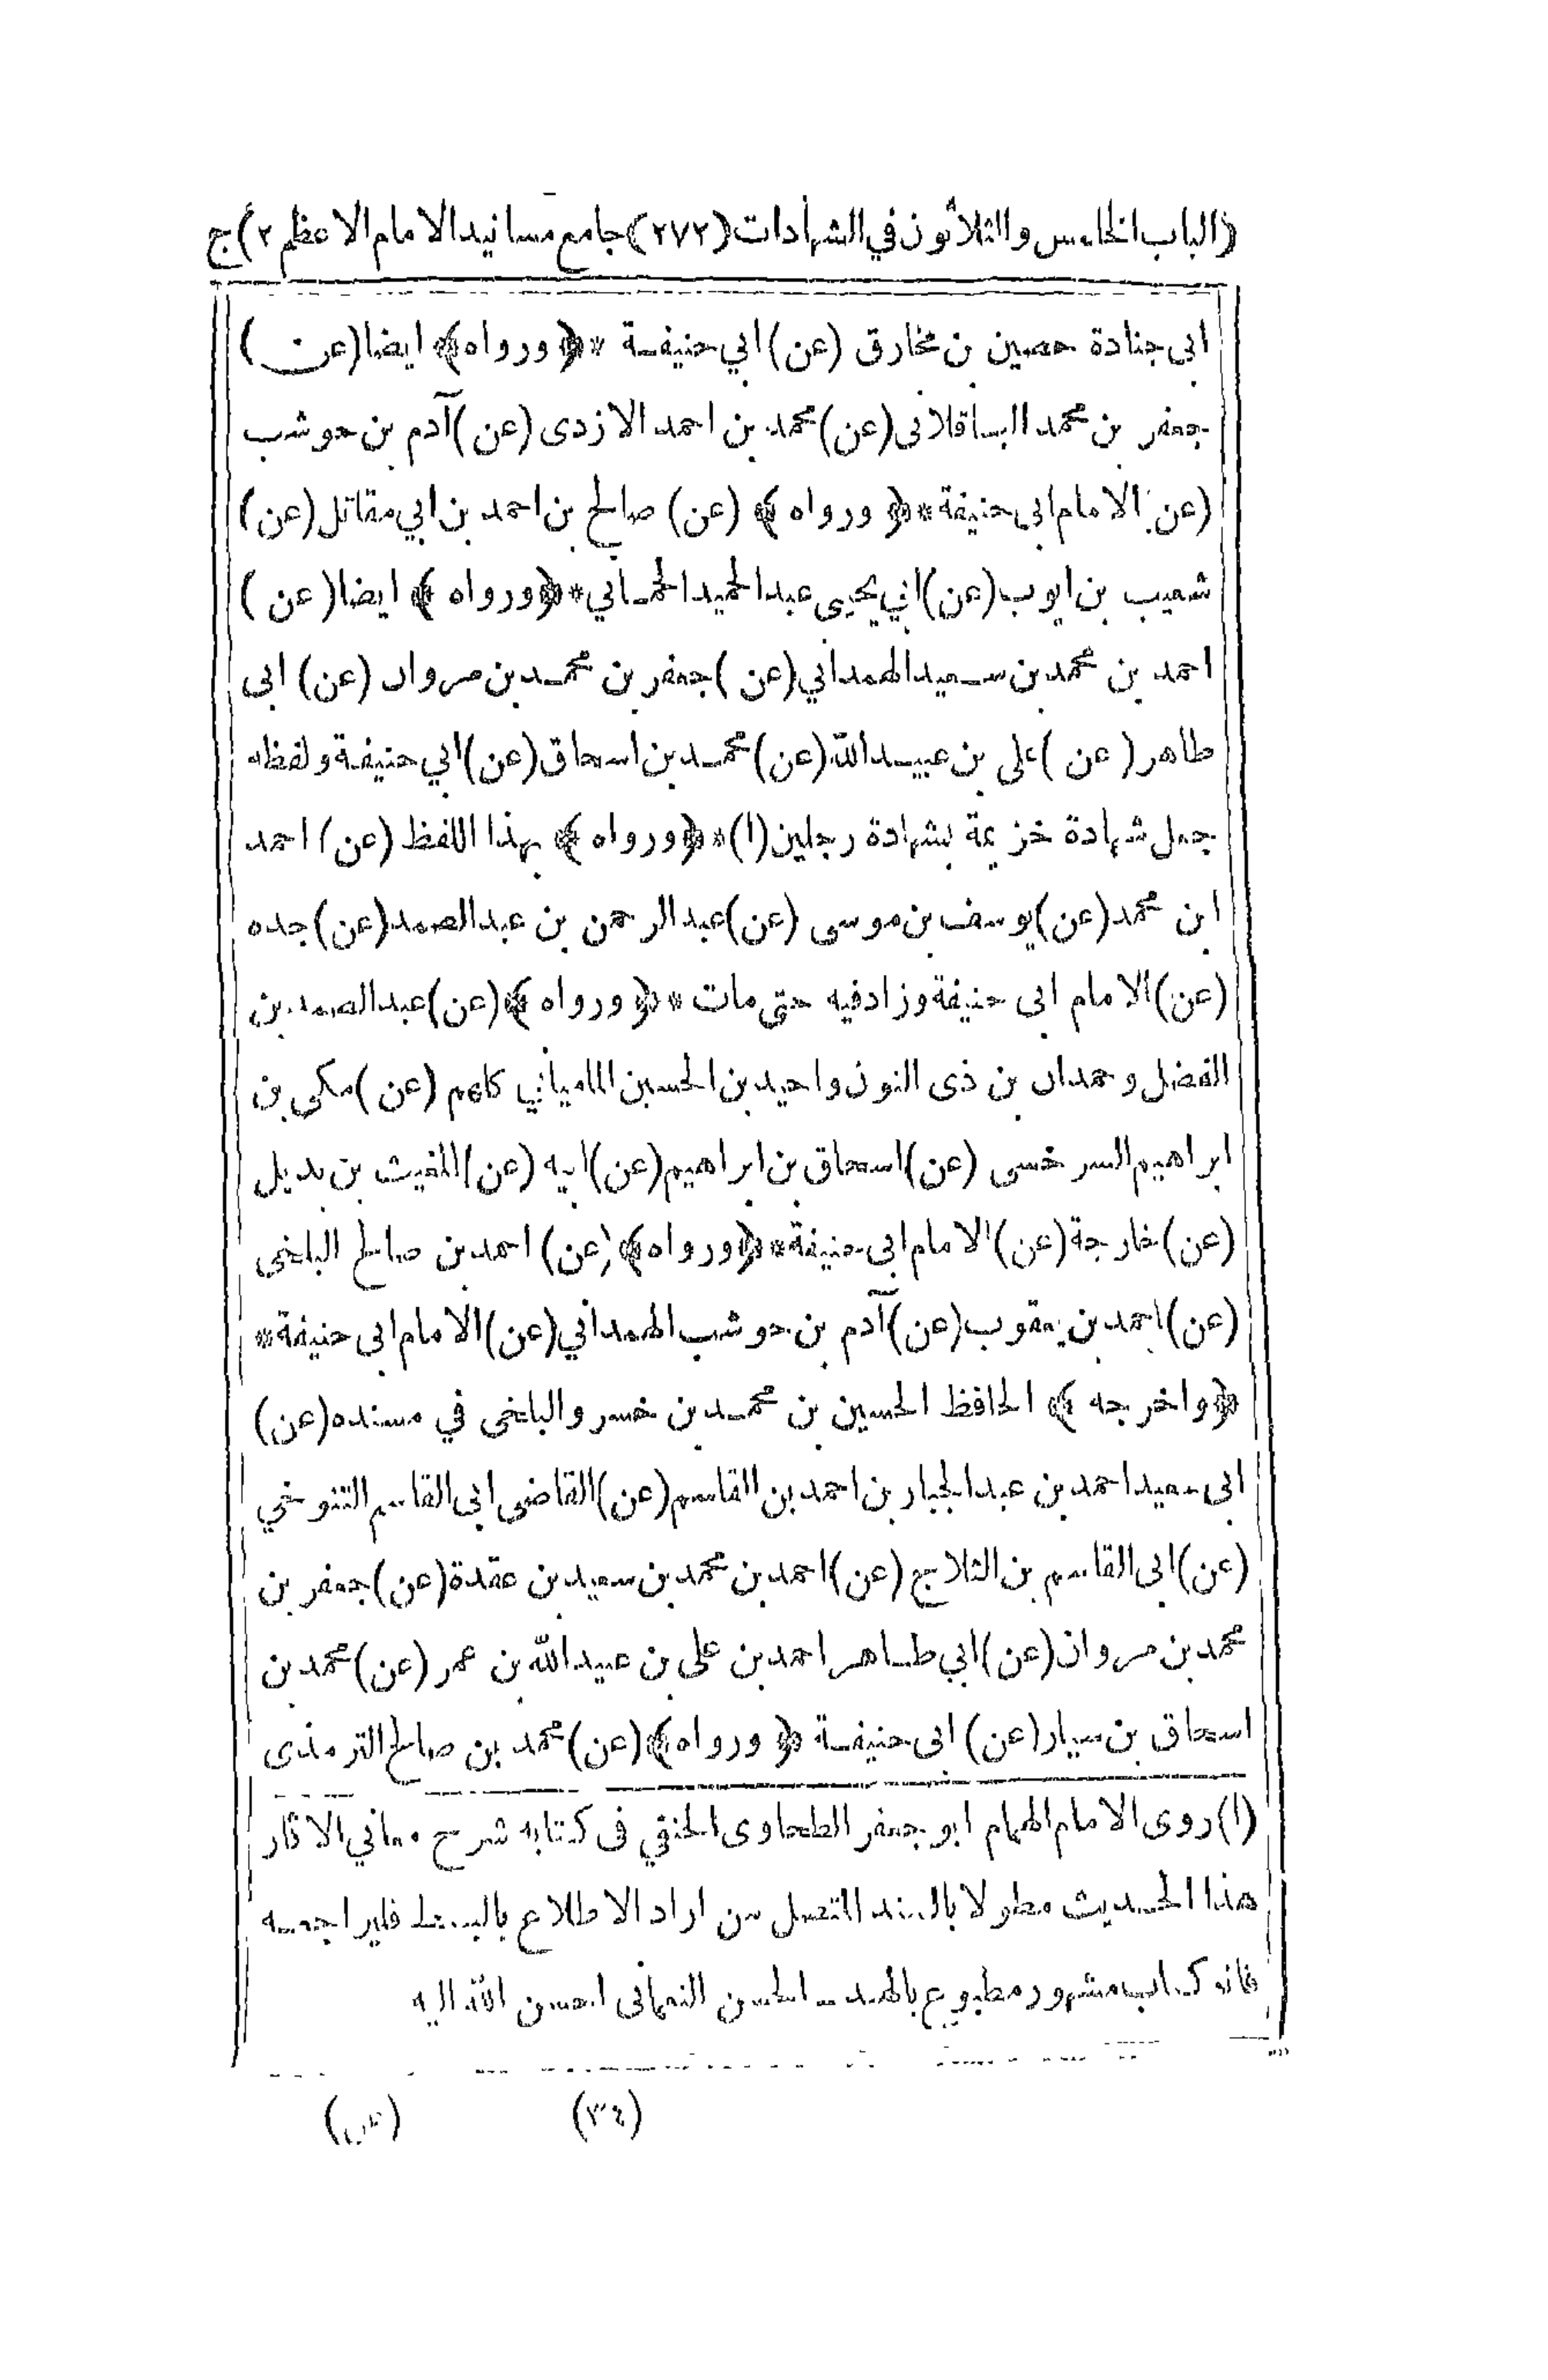 (الباب الخامس والثلاثون في الشهادات (٢٧٢) جامع مسانيد الامام الاعظم ٢) ج
ابى جنادة حصين بن مخارق (عن) ابي حنيفة * ﴿ورواه﴾ ايضا (عن)
جعفر بن محمد الباقلانى (عن) محمد بن احمد الازدى (عن) آدم بن حوشب
(عن) الامام ابى حنيفة * ﴿ورواه﴾ (عن) صالح بن احمد بن ابي مقاتل (عن)
شعيب بن ايوب (عن) ابي يحيى عبد الحميد الحماني * ﴿ورواه﴾ ايضا (عن)
احمد بن محمد بن سعيد الهمداني (عن) جعفر بن محمد بن مروان (عن) ابى
طاهر (عن) على بن عبيد الله (عن) محمد بن اسحاق (عن) ابي حنيفة ولفظه
جعل شهادة خزيمة بشهادة رجلين (١) * ﴿ورواه﴾ بهذا اللفظ (عن) احمد
ابن محمد (عن) يوسف بن موسى (عن) عبد الرحمن بن عبد الصمد (عن) جده
(عن) الامام ابى حنيفة وزاد فيه حتى مات * ﴿ورواه﴾ (عن) عبد الصمد بن
الفضل وحمدان بن ذى النون واحيد بن الحسين الماميانى كلهم (عن) مكى بن
ابراهيم السرخسى (عن) اسحاق بن ابراهيم (عن) ابيه (عن) المغيث بن بديل
(عن) خارجة (عن) الامام ابى حنيفة * ﴿ورواه﴾ (عن) احمد بن صالح البلخى
(عن) احمد بن يعقوب (عن) آدم بن حوشب الهمداني (عن) الامام ابى حنيفة *
﴿واخرجه﴾ الحافظ الحسين بن محمد بن خسرو البلخى في مسنده (عن)
ابى سعيد احمد بن عبد الجبار بن احمد بن القاسم (عن) القاضى ابى القاسم التنوخي
(عن) ابى القاسم بن الثلاج (عن) احمد بن محمد بن سعيد بن عقدة (عن) جعفر بن
محمد بن مروان (عن) ابي طاهر احمد بن على بن عبيد الله بن عمر (عن) محمد بن
اسحاق بن سيار (عن) ابى حنيفة ﴿ورواه﴾ (عن) محمد بن صالح الترمذى
(١) روى الامام الهمام ابو جعفر الطحاوى الحنفي فى كتابه شرح معاني الاثار
هذا الحديث مطولا بالسند المتصل من اراد الاطلاع بالبسط فليراجعه
فانه كتاب مشهور مطبوع بالهند - الحسن النعمانى احسن الله اليه
(٣٤)